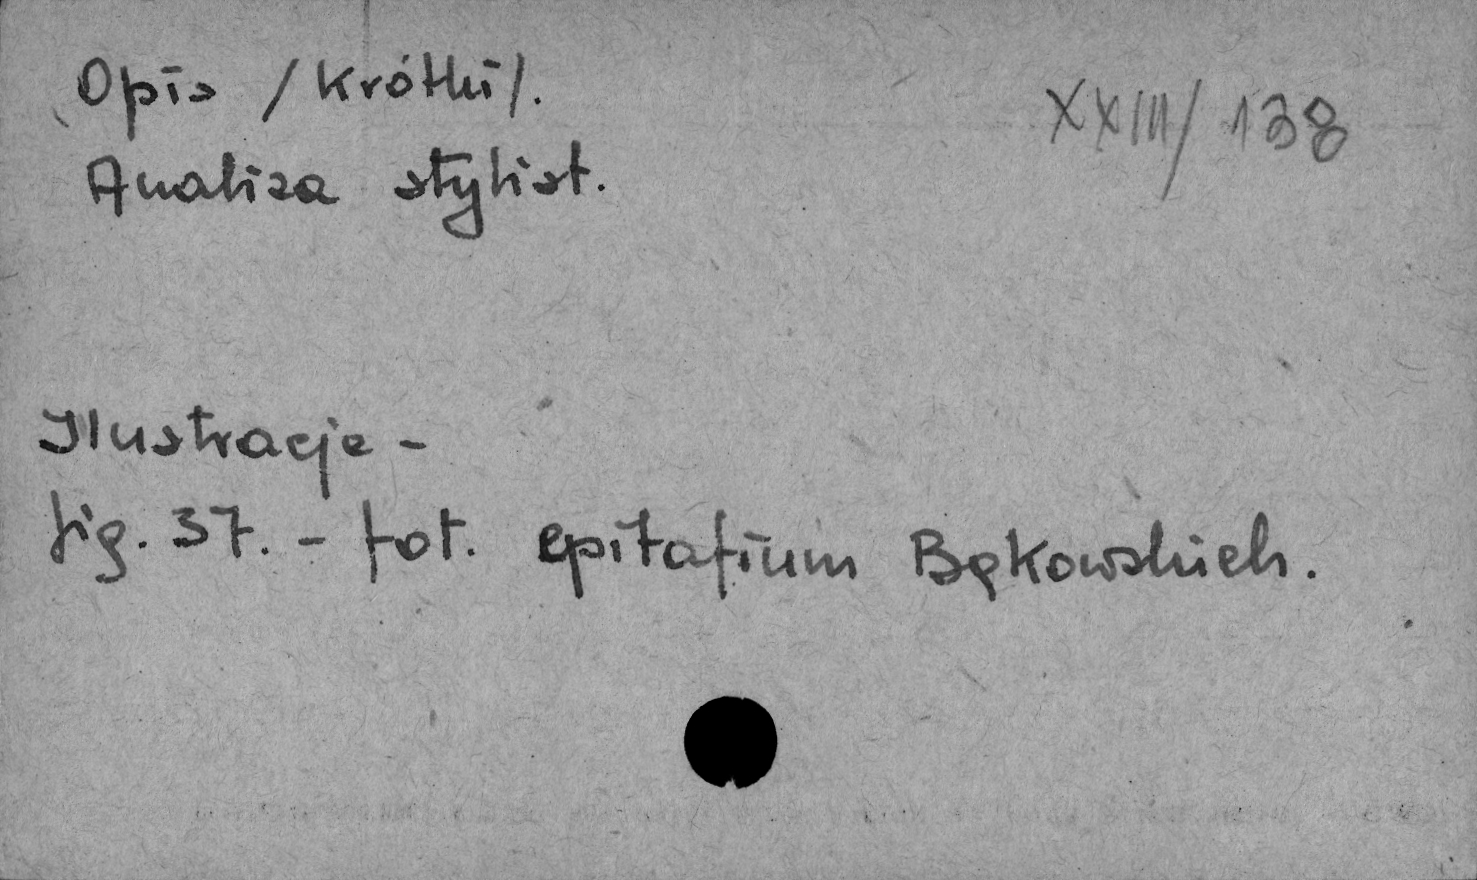 Opis /krótki/.
XXIII/138
Analiza stylist.
Ilustracje -
fig. 37. - fot. epitafium Bękowskich.